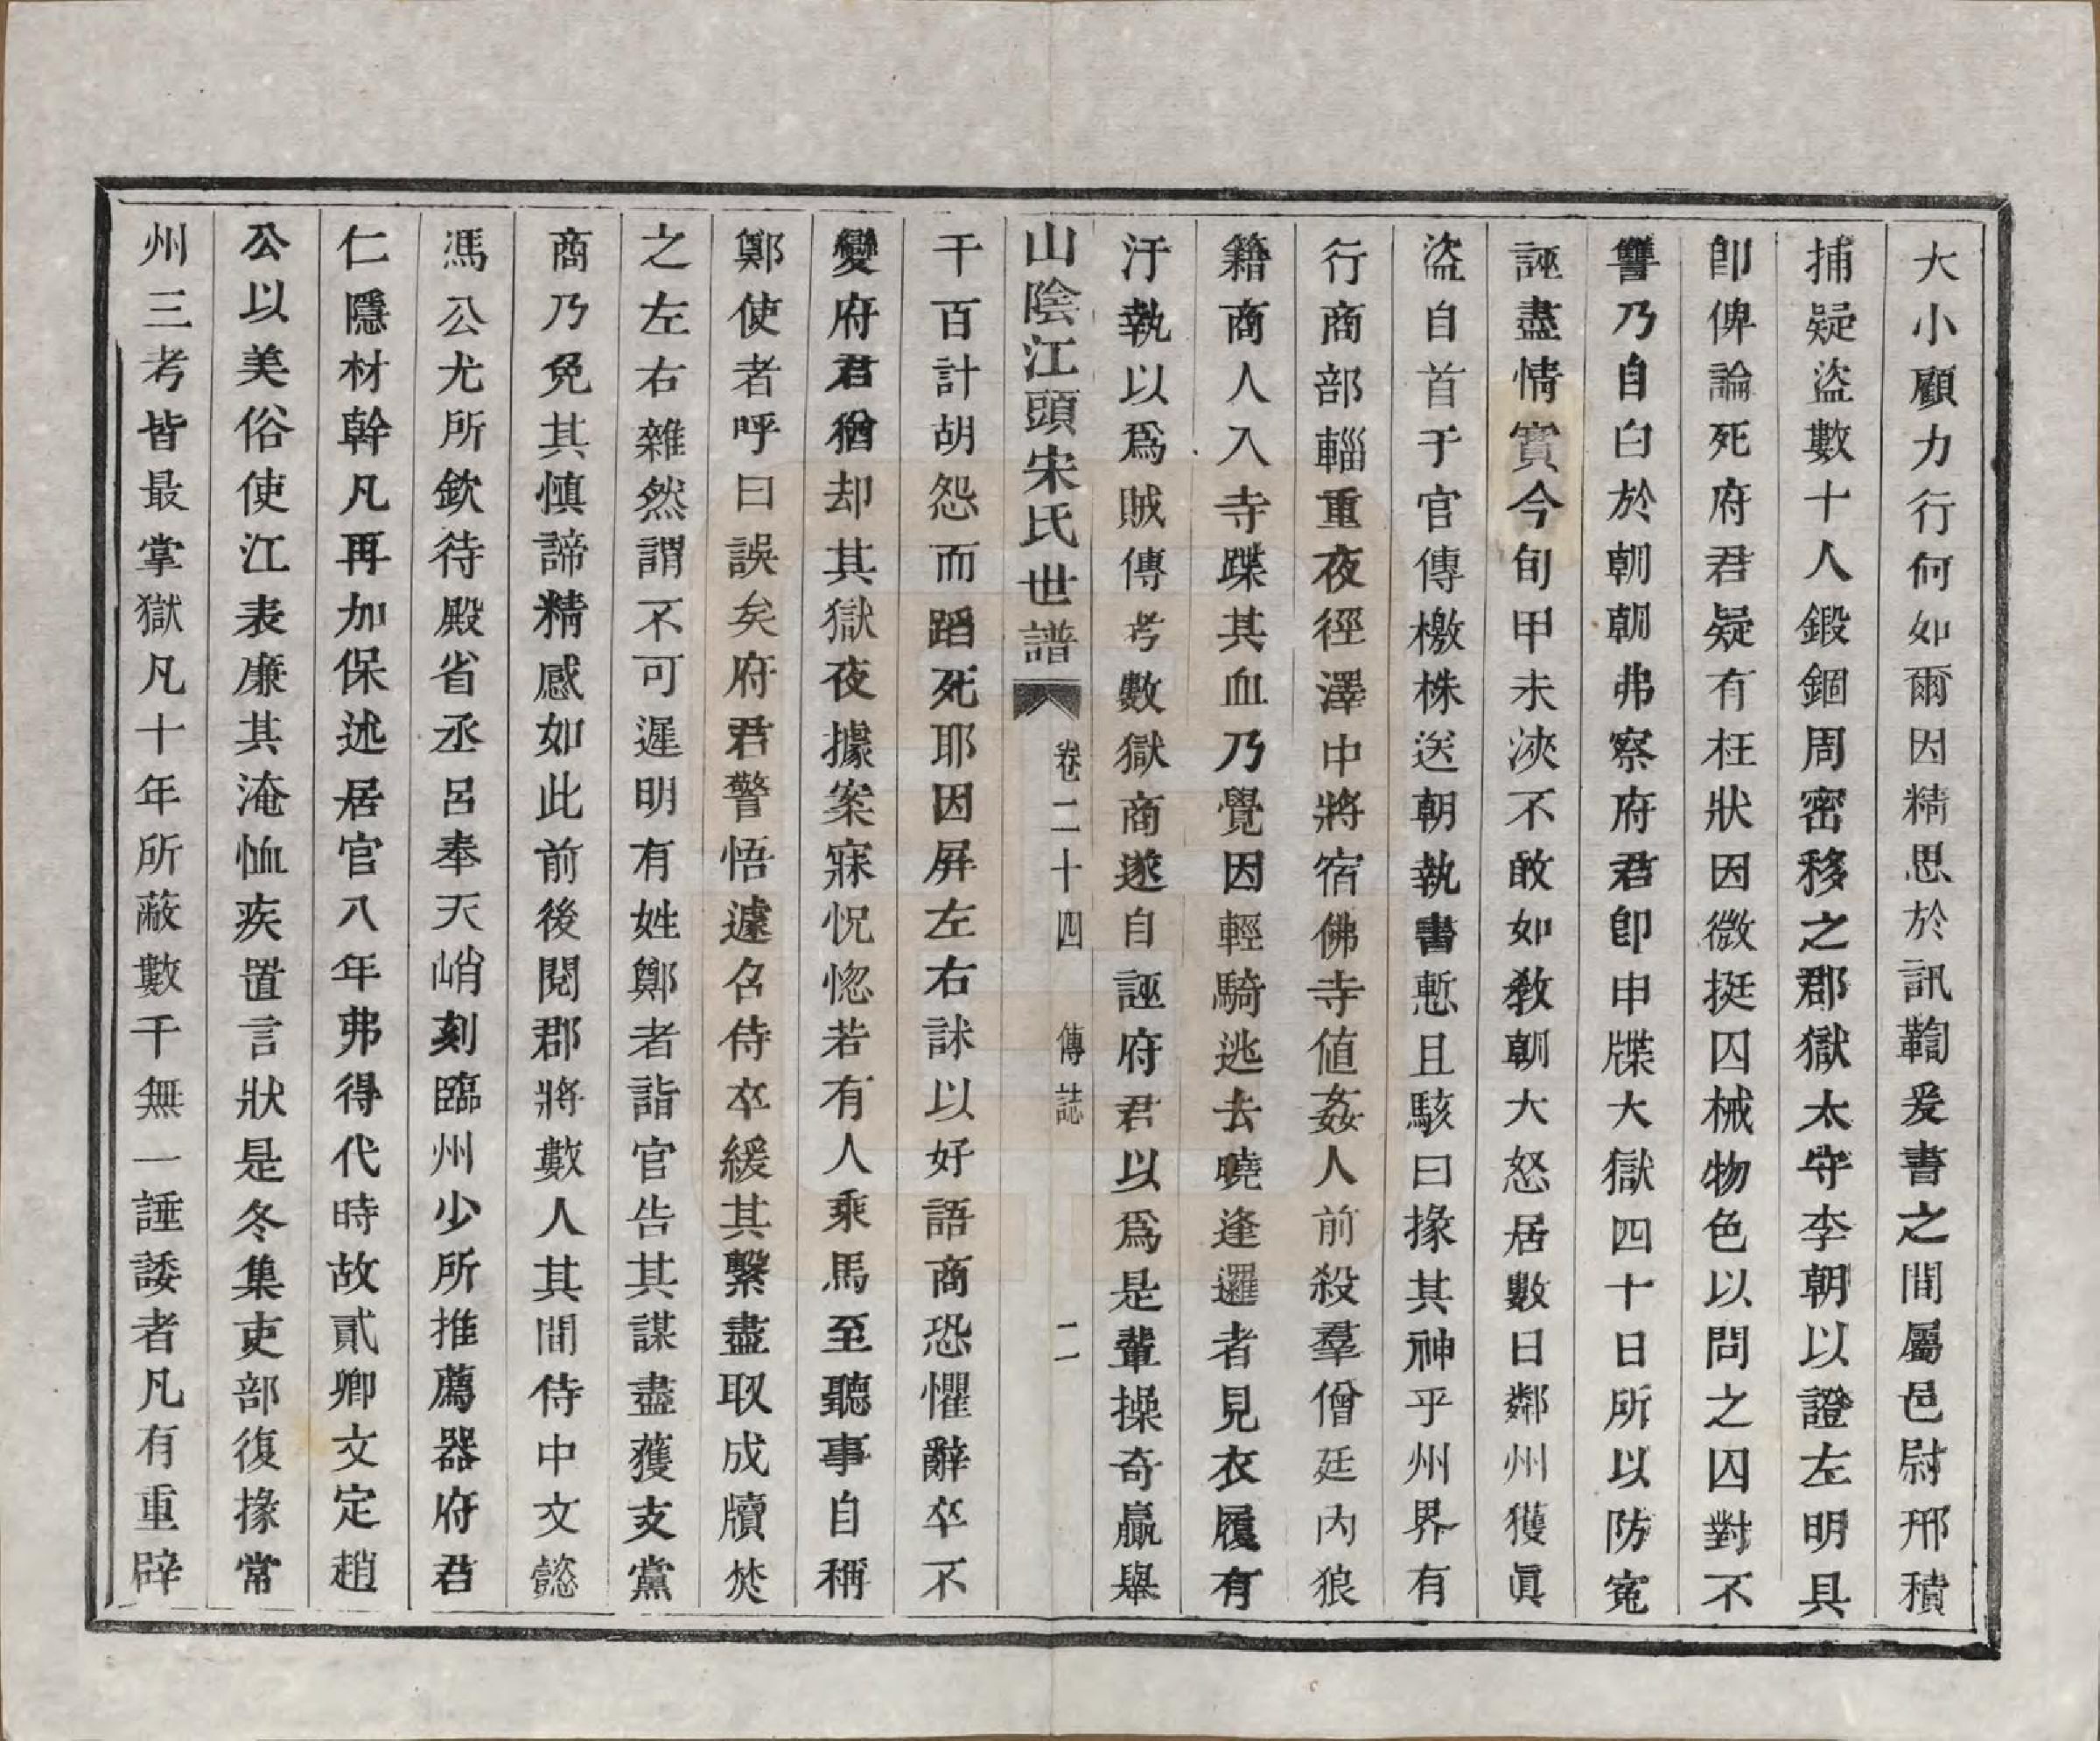 大小顧力行何如爾因精思於訊鞫爰書之間屬邑尉邢積
捕疑盜數十人鍛錮周密移之郡獄太守李朝以證左明具
卽俾論死府君疑有枉狀因微挺囚械物色以問之囚對不
讐乃自白於朝朝弗察府君卽申牒大獄四十日所以防寃
誣盡情實今旬甲未浹不敢如敎朝大怒居數日鄰州獲眞
盜自首于官傳檄株送朝執書慙且駭曰掾其神乎州界有
行商部輜重夜徑澤中將宿佛寺値姦人前殺羣僧廷內狼
籍商人入寺蹀其血乃覺因輕騎逃去曉逢邏者見衣履有
汙執以爲賊傳考數獄商遂自誣府君以爲是輩操奇贏舉
山陰江頭宋氏世譜 卷二十四 傳誌 二
千百計胡怨而蹈死耶因屛左右訹以好語商恐懼辭卒不
變府君猶却其獄夜據案寐怳惚若有人乘馬至聽事自稱
鄭使者呼曰誤矣府君警悟遽名侍卒緩其繫盡取成牘焚
之左右雜然謂不可遲明有姓鄭者詣官告其謀盡獲支黨
商乃免其愼諦精感如此前後閱郡將數人其間侍中文懿
馮公尤所欽待殿省丞呂奉天峭刻臨州少所推薦器府君
仁隱材幹凡再加保述居官八年弗得代時故貳卿文定趙
公以美俗使江表廉其淹恤疾置言狀是冬集吏部復掾常
州三考皆最掌獄凡十年所蔽數千無一諈諉者凡有重辟